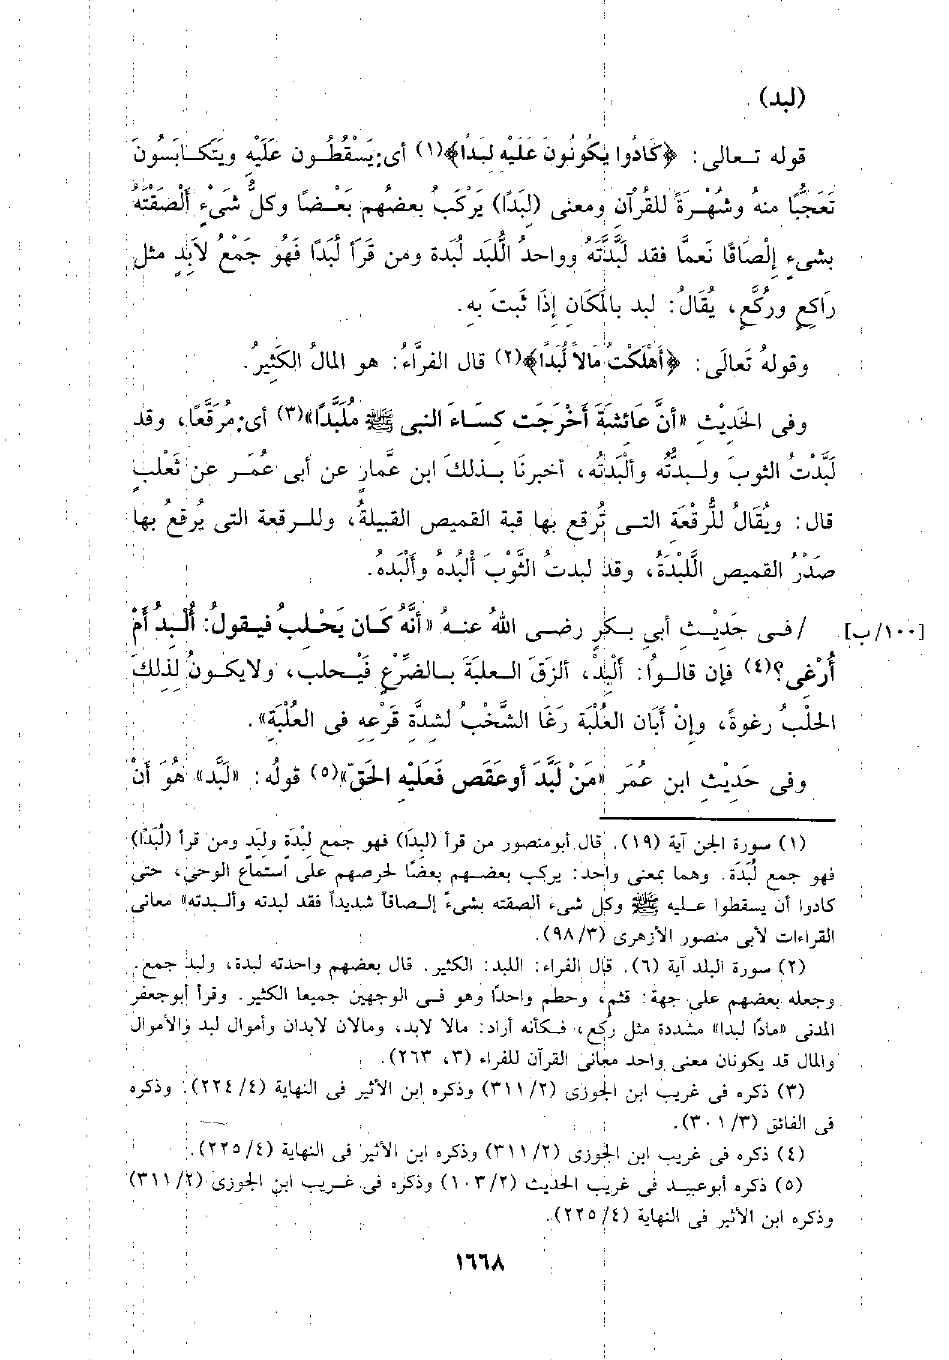 (لبد)
قوله تعالى: ﴿كَادُوا يَكُونُونَ عَلَيْهِ لِبَدًا﴾(١) أى: يَسْقُطُون عَلَيْهِ ويَتَكابَسُونَ
تَعَجُّبًا منهُ وشُهْرَةً للقُرآنِ ومعنى (لِبَدًا) يَرْكَبُ بعضُهم بَعْضًا وكلُّ شَىْءٍ ألْصَقْتَهُ
بشىءٍ إلْصَاقًا نَعمًّا فقد لَبَّدْتَهُ وواحدُ اللُّبَد لُبَدة ومن قَرَأَ لُبَدًا فَهُو جَمْعُ لاَبِدٍ مثل
رَاكِعٍ ورُكَّعٍ، يُقَالُ: لبد بالمَكَانِ إذَا ثَبتَ بِه.
وقولهُ تَعالَى: ﴿أَهْلَكْتُ مَالاً لُبَدًا﴾(٢) قال الفرَّاءُ: هو المالُ الكَثِيرُ.
وفى الحَدِيْث «أنَّ عَائشَةَ أَخْرَجَت كسَاءَ النبى ﷺ مُلَبَّدًا»(٣) أى: مُرَقَّعًا، وقد
لَبَّدْتُ الثوبَ ولـبدُّتُه وألْبَدتُه، أخبرنَا بذلكَ ابن عمَّارٍ عن أبى عُمَر عن ثَعْلبٍ
قال: ويُقَالُ للُّرقْعَة التى تُرقع بها قبة القميص القبيلةُ، وللرقعة التى يُرقعُ بها
صَدْرُ القميص اللَّبْدَةُ، وقد لبدتُ الثَّوْبَ ألْبدُهُ وألْبَدهُ.
[١٠٠/ب] / فى حَدِيْثِ أبى بكرٍ رضى اللهُ عنهُ «أنَّهُ كَان يَحْلبُ فيقولُ: أُلْبِدُ أمْ
أُرْغى؟(٤) فإن قالوا: أَلْبِدْ، ألزقَ العلبَةَ بالضَّرْعِ فَيْحلب، ولايكونُ لذلكَ
الحلْبُ رغوةً، وإنْ أَبَان العُلْبَة رَغَا الشَّخْبُ لشدَّةِ قَرْعِه فى العُلْبَة».
وفى حَدِيْثِ ابن عُمَر «مَنْ لَبَّدَ أو عَقَص فَعَليْه الحَقّ»(٥) قولُه: «لَبَّد» هُو أنْ
(١) سورة الجن آية (١٩). قال أبومنصور من قرأ (لِبَدًا) فهو جمع لِبْدَة ولِبَدٍ ومن قرأ (لُبَدًا)
فهو جمع لُبَدَة. وهما بمعنى واحد: يركب بعضهم بعضًا لحرصهم على أستماع الوحى، حتى
كادوا أن يسقطوا عليه ﷺ وكل شىء ألصقته بشىءً إلصاقاً شديداً فقد لبدته وألبدته» معانى
القراءات لأبى منصور الأزهرى (٩٨/٣).
(٢) سورة البلد آية (٦). قال الفراء: اللبد: الكثير. قال بعضهم واحدته لبدة، ولبد جمع.
وجعله بعضهم على جهة: قثم، وحطم واحدًا وهو فى الوجهين جميعا الكثير. وقرأ أبوجعفر
المدنى «مادًا لبدا» مشددة مثل رُكع، فكأنه أراد: مالا لابد، ومالان لابدان وأموال لبد والأموال
والمال قد يكونان معنى واحد معانى القرآن للفراء (٣، ٢٦٣).
(٣) ذكره فى غريب ابن الجوزى (٣١١/٢) وذكره ابن الأثير فى النهاية (٢٢٤/٤). وذكره
فى الفائق (٣٠١/٣).
(٤) ذكره فى غريب ابن الجوزى (٣١١/٢) وذكره ابن الأثير فى النهاية (٢٢٥/٤).
(٥) ذكره أبوعبيد فى غريب الحديث (١٠٣/٢) وذكره فى غريب ابن الجوزى (٣١١/٢)
وذكره ابن الأثير فى النهاية (٢٢٥/٤).
١٦٦٨